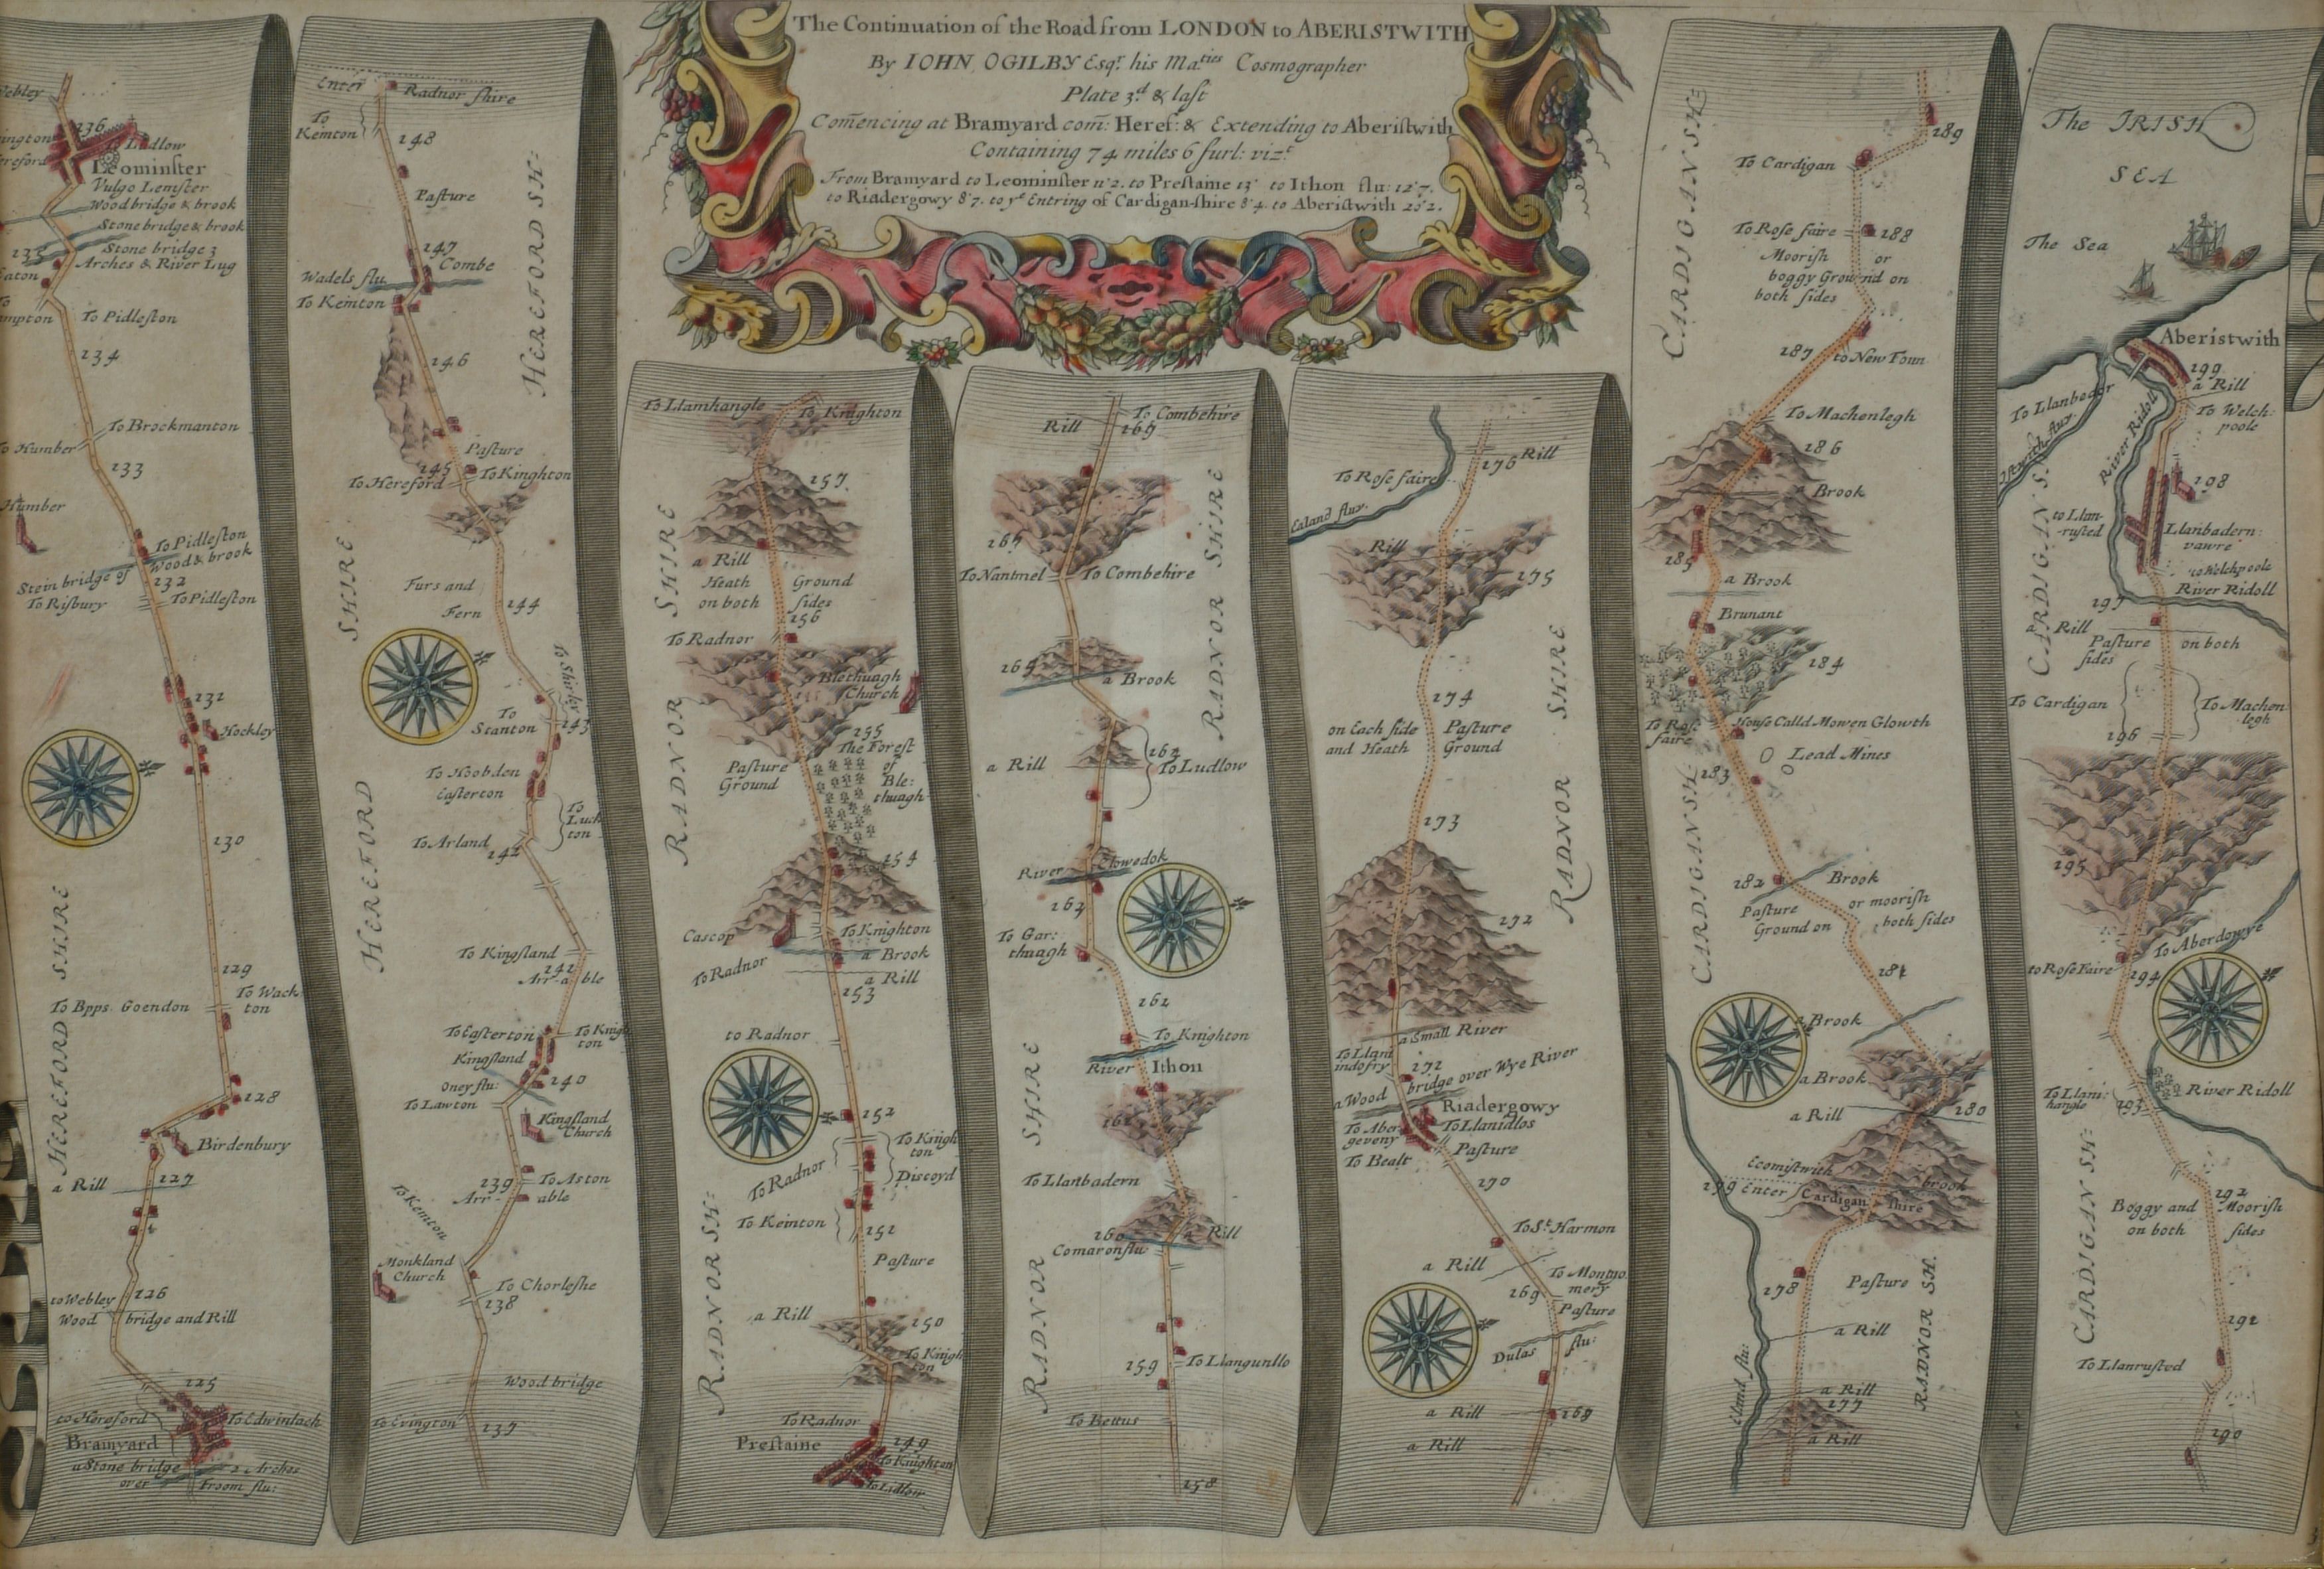 The Continuation of the Road from LONDON to ABERISTWITH
By IOHN OGILBY Esqr. his Maties Cosmographer
Plate 3d. & last
Comencing at Bramyard com: Heref: & Extending to Aberistwith
Containing 74 miles 6 furl: vizt.
From Bramyard to Leominster 11'2. to Prestaine 13' to Ithon flu: 12'7.
to Riadergowy 8'7. to ye Entring of Cardigan-shire 8'4. to Aberistwith 20'2.
136
To Ludlow
Leominster
Vulgo Lemster
Wood bridge & brook
Stone bridge & brook
Stone bridge 3
Arches & River Lug
135
To Pidleston
134
To Brockmanton
To Humber
133
Humber
To Pidleston
Wood & brook
Stein bridge of
132
To Risbury
To Pidleston
131
Hockley
130
129
To Bpps. Goendon
To Wack
ton
128
Birdenbury
a Rill
127
126
to Webley
Wood bridge and Rill
125
to Hereford
To Edwinlach
Bramyard
a Stone bridge 2 Arches
over Froom flu:
HEREFORD SHIRE
Enter Radnor shire
To
Kemton
148
Pasture
147
Combe
Wadels flu.
To Kemton
146
Pasture
145
To Kinghton
To Hereford
Furs and
Fern
144
to Shirley
To
Stanton
143
To Hoobden
Easterton
To
Luck
ton
To Arland
142
To Kingsland
141
Arr-a ble
To Easterton
To Knigh
ton
Kingsland
Oney flu:
140
To Lawton
Kingsland
Church
139
To Aston
Arr- able
To Kemton
Monkland
Church
To Chorleshe
138
Wood bridge
To Evington
137
HEREFORD SHIRE
HEREFORD SH:
To Llamhangle
To Knighton
157
a Rill
Heath Ground
on both sides
156
To Radnor
Blethuagh
Church
155
The Forest
of
Ble:
thuagh
Pasture
Ground
154
Cascop
To Knighton
a Brook
To Radnor
a Rill
153
to Radnor
152
To Knigh
ton
To Radnor
Discoyd
To Keinton
151
Pasture
a Rill
150
To Knigh
on
To Radnor
Prestaine
149
To Knighton
To Ludlow
RADNOR SHIRE
RADNOR SH:
Rill
To Combehire
167
To Nantmel
To Combehire
165
a Brook
164
a Rill
To Ludlow
River Clowedok
163
To Gar:
thuagh
162
To Knighton
River Ithon
161
To Llanbadern
160
a Rill
Comaron flu:
159
To Llangunllo
To Bettus
158
RADNOR SHIRE
RADNOR SHIRE
176 Rill
To Rose faire
Ealand fluv.
Rill
175
174
on Each side Pasture
and Heath Ground
173
172
a Small River
To Llani
indofry
171
a Wood bridge over Wye River
Riadergowy
To Aber
geveny
To Llanidlos
To Bealt
Pasture
170
To St. Harmon
a Rill
To Montgo
mery
169
Pasture
Dulas flu:
a Rill
168
a Rill
RADNOR SHIRE
189
To Cardigan
To Rose faire
188
Moorish or
boggy Ground on
both sides
187
to New Toun
To Machenlegh
186
Brook
185
a Brook
Brunant
184
To Rose
faire
House Calld Mowen Glowth
Lead Mines
183
182
Brook
Pasture or moorish
Ground on both sides
181
a Brook
a Brook
a Rill
180
Ecomistwith
brook
179 Enter Cardigan shire
178
Pasture
a Rill
Eland flu:
a Rill
177
a Rill
CARDIGAN SH:
CARDIGAN SH:
RADNOR SH.
The IRISH
SEA
The Sea
Aberistwith
199
a Rill
To Llanbedor
Istwith fluv.
River Ridoll
To Welch:
poole
198
to Llan-
-rusted
Llanbadern:
vawre
to Welchpoole
River Ridoll
197
a Rill
Pasture on both
sides
To Cardigan
To Machen
legh
196
195
To Aberdowye
to Rose Faire
194
To Llam:
hangle
193
River Ridoll
192
Boggy and Moorish
on both sides
191
To Llanrusted
190
CARDIGAN S:
CARDIGAN SH: